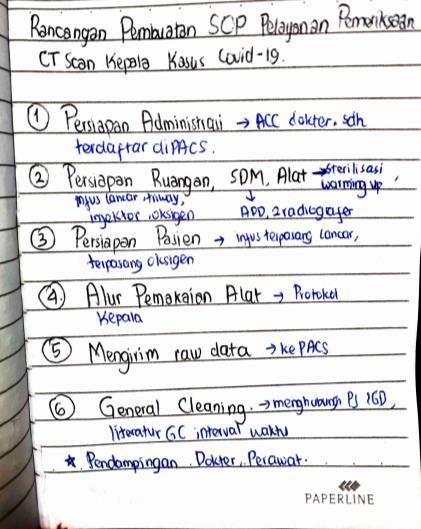 Rancangan Pembuatan SOP Pelayanan Pemeriksaan
CT Scan Kepala Kasus Covid-19.
① Persiapan Administrasi → ACC dokter, sdh
terdaftar di PACS.
② Persiapan Ruangan, SDM, Alat → sterilisasi,
warming up
infus lancar triway, ↓
injektor, oksigen APD, 2 radiografer
③ Persiapan Pasien → infus terpasang lancar,
terpasang oksigen
④ Alur Pemakaian Alat → Protokol
Kepala
⑤ Mengirim raw data → ke PACS
⑥ General Cleaning. → menghubungi PJ IGD,
literatur GC interval waktu
* Pendampingan Dokter, Perawat.
PAPERLINE